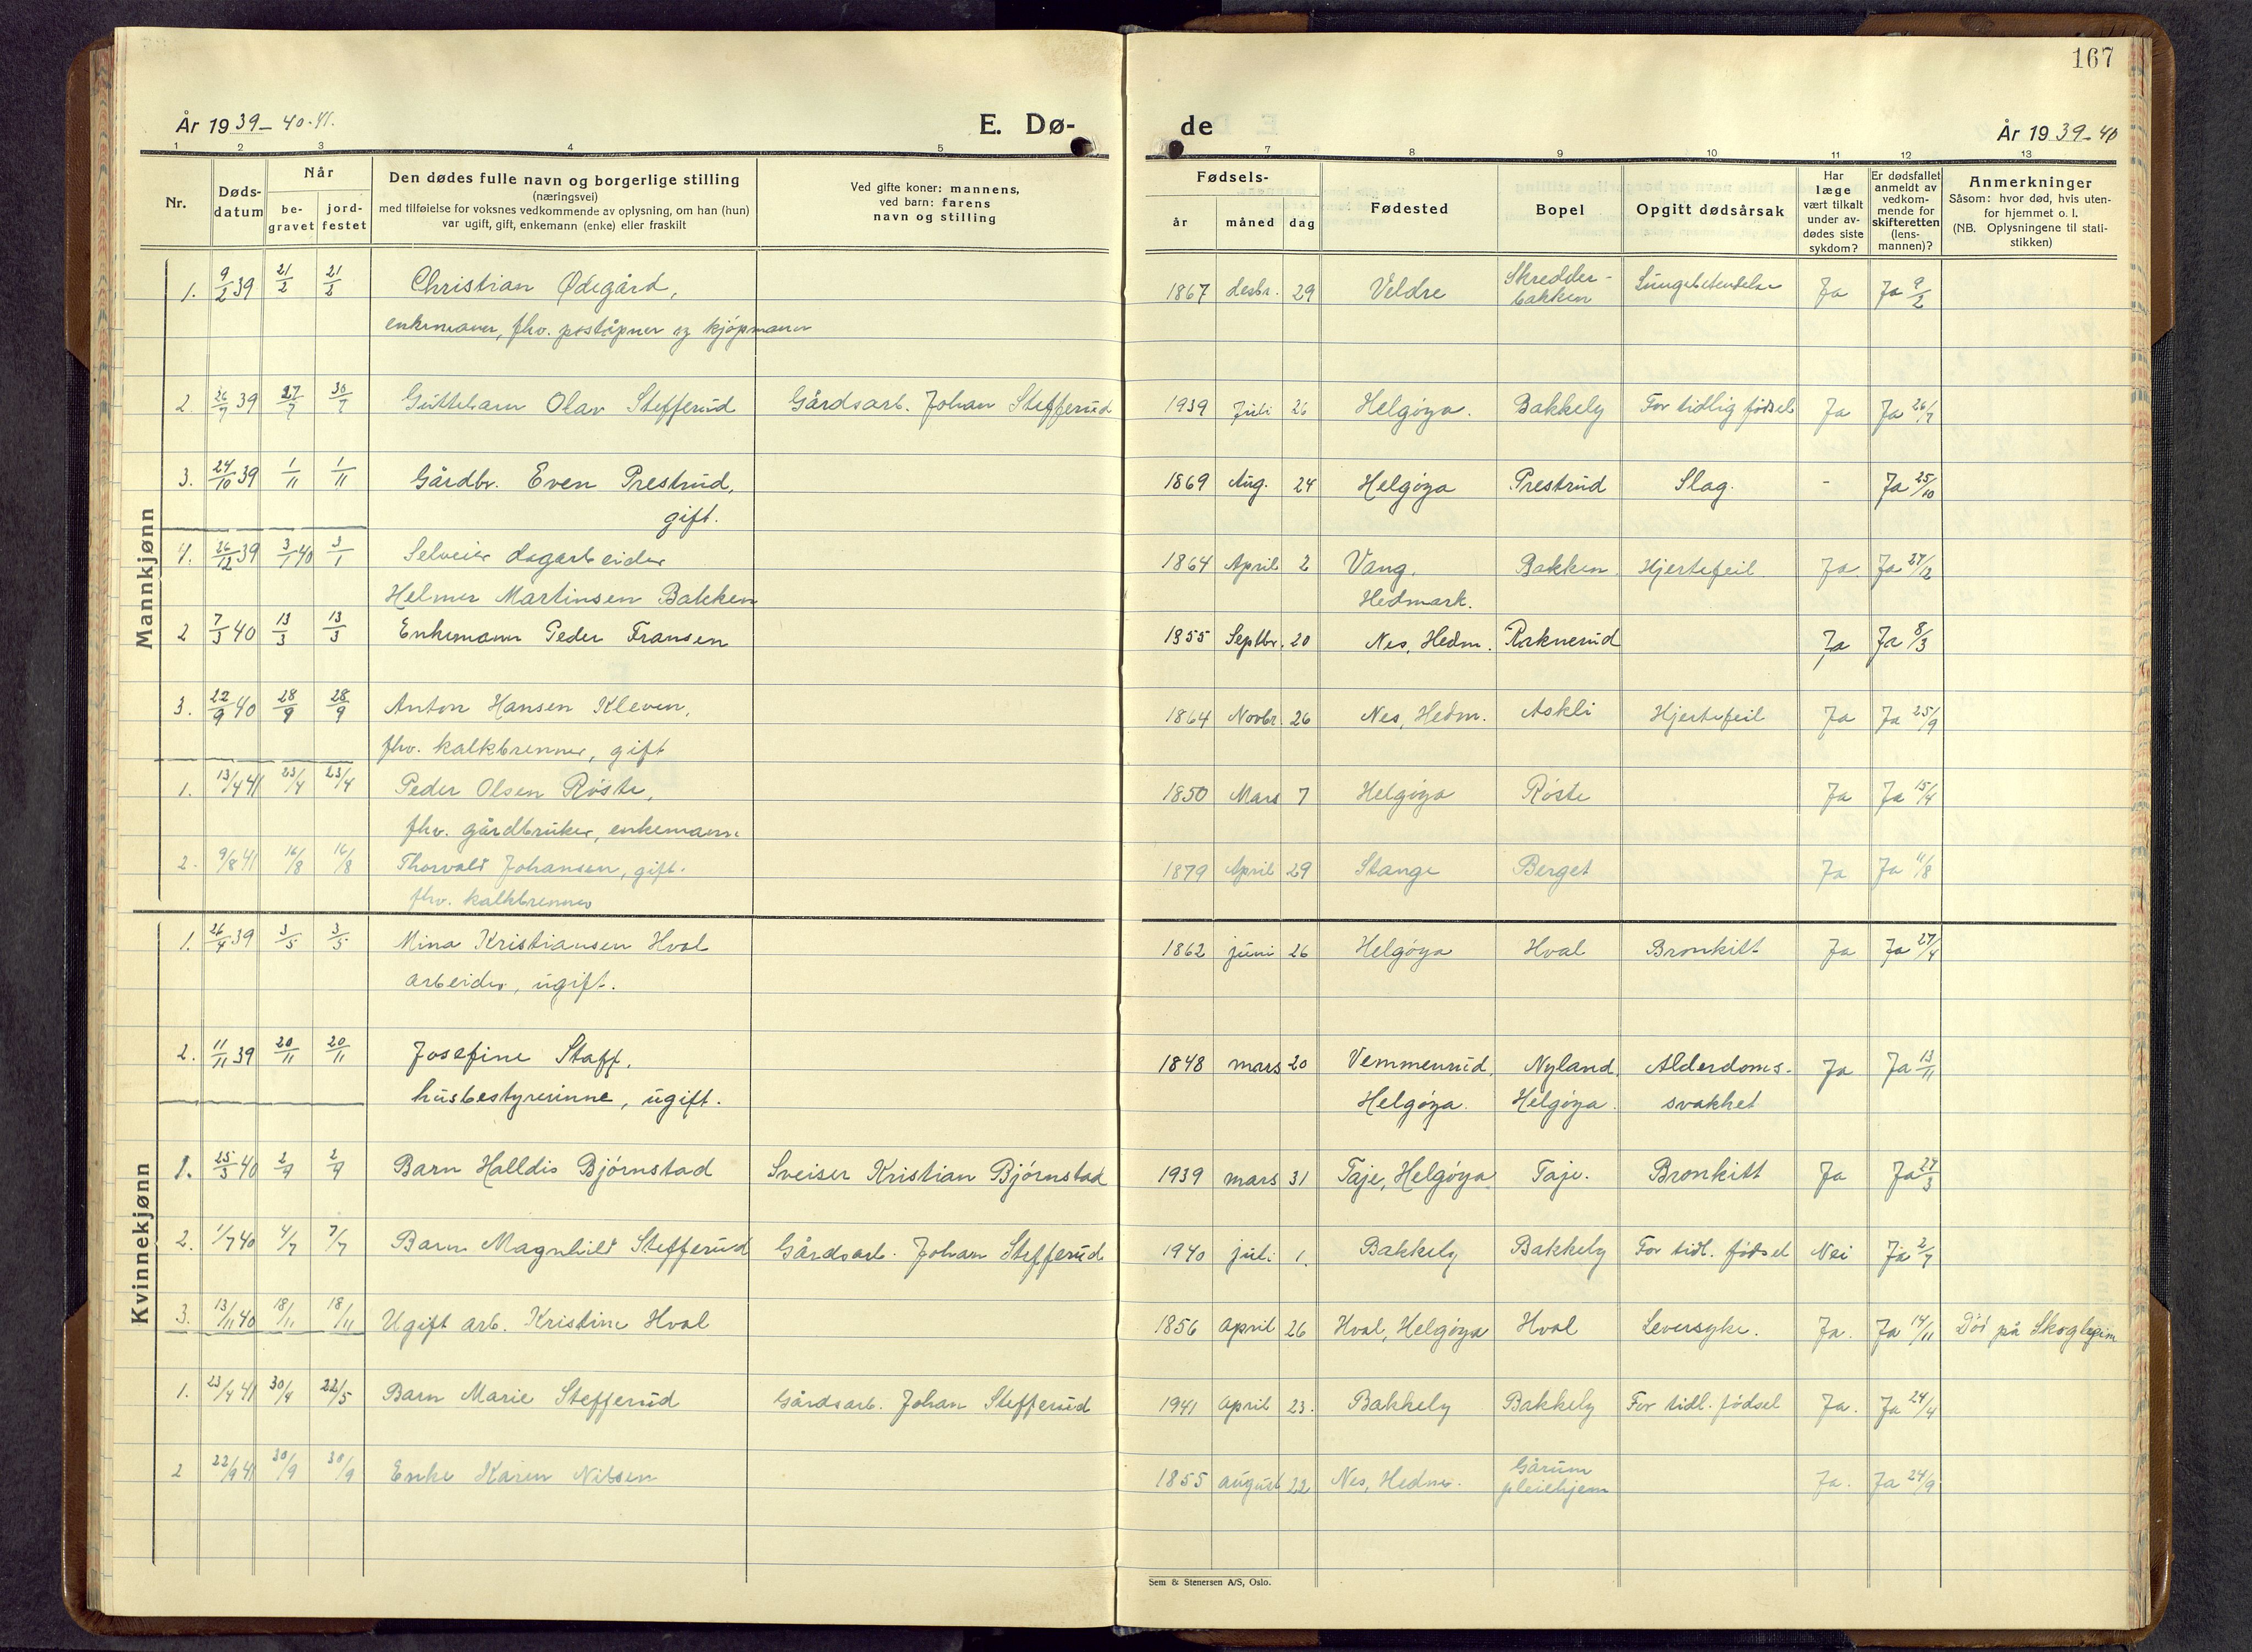 167
År 1939-40-41.
E. Dø-
de
År 1939-40
1 2 3 4 5
7 8 9 10 11 12 13
Nr.
Døds-
datum
Når
be-
gravet
jord-
festet
Den dødes fulle navn og borgerlige stilling
(næringsvei)
med tilføielse for voksnes vedkommende av oplysning, om han (hun)
var ugift, gift, enkemann (enke) eller fraskilt
Ved gifte koner: mannens,
ved barn: farens
navn og stilling
Fødsels-
år måned dag
Fødested
Bopel
Opgitt dødsårsak
Har
læge
vært tilkalt
under av-
dødes siste
sykdom?
Er dødsfallet
anmeldt av
vedkom-
mende for
skifteretten
(lens-
mannen)?
Anmerkninger
Såsom: hvor død, hvis uten-
for hjemmet o. l.
(NB. Oplysningene til stati-
stikken)
Mannkjønn
1. 9/2 39 21/2 21/2 Christian Ødegård, 1867 desbr. 29 Veldre Skredder-bakken Lungebetendelse Ja Ja 9/2
enkemann, fhv. poståpner og kjøpmann
2. 26/7 39 27/7 30/7 Guttebarn Olav Stefferud Gårdsarb. Johan Stefferud 1939 Juli 26 Helgøya. Bakkely For tidlig fødsel Ja Ja 26/7
3. 24/10 39 1/11 1/11 Gårdbr. Even Prestrud, 1869 Aug. 24 Helgøya Prestrud Slag. - Ja 25/10
gift.
4. 26/12 39 3/1 40 3/1 Selveier dagarbeider 1864 April 2 Vang, Bakken Hjertefeil Ja Ja 27/12
Helmer Martinsen Bakken Hedmark.
2 7/3 40 13/3 13/3 Enkemann Peder Fransen 1855 Septbr. 20 Nes, Hedm. Ja Ja 8/3
3. 22/9 40 28/9 28/9 Anton Hansen Kleven, 1864 Novbr. 26 Nes, Hedm. Askli Hjertefeil Ja Ja 25/9
fhv. kalkbrenner, gift
1. 13/4 41 23/4 23/4 Peder Olsen Røste, 1850 Mars 7 Helgøya Røste Ja Ja 15/4
fhv. gårdbruker, enkemann
2. 9/8 41 16/8 16/8 Thorvald Johansen, gift. 1879 April 29 Stange Berget Ja Ja 11/8
fhv. kalkbrenner
Kvinnekjønn
1. 26/4 39 3/5 3/5 Mina Kristiansen Hval 1862 juni 26 Helgøya Hval Bronkitt Ja Ja 27/4
arbeider, ugift.
2. 11/11 39 20/11 20/11 Josefine Staff, 1848 mars 20 Vemmenrud, Nyland, Alderdoms- Ja Ja 13/11
husbestyrerinne, ugift. Helgøya. Helgøya. svakhet
1. 25/3 40 2/4 2/4 Barn Halldis Bjørnstad Sveiser Kristian Bjørnstad 1939 mars 31 Taje, Helgøya Taje. Bronkitt Ja Ja 27/3
2. 1/7 40 4/7 7/7 Barn Magnhild Stefferud Gårdsarb. Johan Stefferud 1940 juli 1. Bakkely Bakkely For tidl. fødsel Nei Ja 2/7
3. 13/11 40 18/11 18/11 Ugift arb. Kristine Hval 1856 april 26 Hval, Helgøya Hval Leversyke. Ja. Ja 14/11 Død på Skogheim
1. 23/4 41 30/4 22/5 Barn Marie Stefferud Gårdsarb. Johan Stefferud 1941 april 23. Bakkely Bakkely For tidl. fødsel Ja. Ja 24/4
2 22/9 41 30/9 30/9 Enke Karen Nilsen 1855 august 22 Nes, Hedm. Gårum pleiehjem Ja. Ja 24/9
Sem & Stenersen A/S, Oslo.